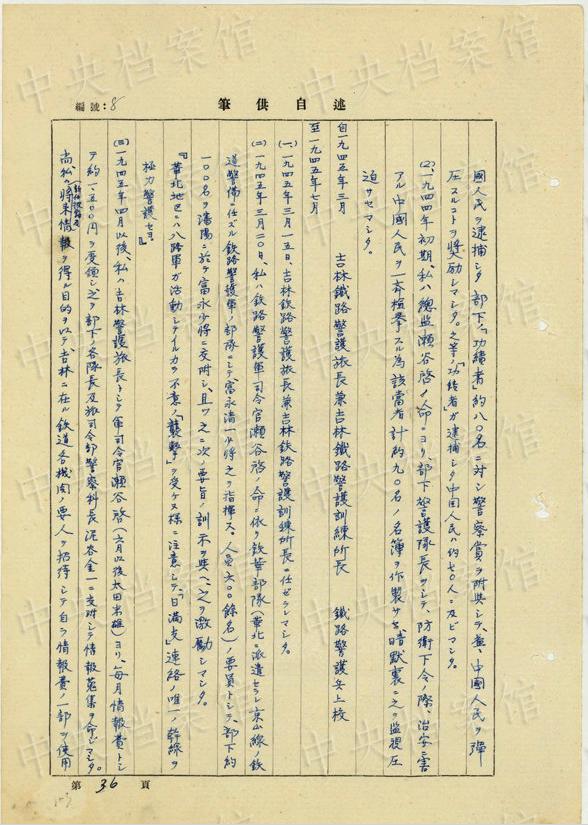 述自供筆
編號:8
國人民ヲ逮捕シタ部下ノ「功績者」約八〇名ニ対シ警察賞ヲ附與シテ、益々中國人民ヲ弾
圧スルコトヲ奨励シマシタ。之等ノ「功績者」ガ逮捕シタ中国人民ハ約七〇人ニ及ビマシタ。
(2)一九四四年初期、私ハ總監瀬谷啓ノ命ニヨリ、部下警護隊長ヲシテ、防衛下令ノ際、治安ニ害
アル中國人民ヲ一斉檢挙スル為該當者計約九〇名ノ名簿ヲ作製サセ、暗默裏ニ之ヲ監視圧
迫サセマシタ。
自一九四五年三月
至一九四五年七月
吉林鐵路警護旅長兼吉林鐵路警護訓練所長 鐵路警護安上校
(一)一九四五年三月一五日、吉林鉄路警護旅長兼吉林鉄路警護訓練所長ニ任ゼラレマシタ。
(二)一九四五年三月二〇日、私ハ鉄路警護軍司令官瀬谷啓ノ命ニ依リ鉄華部隊(華北ニ派遣セラレ京山線ノ鉄
道警備ニ任ズル鉄路警護軍ノ部隊ニシテ、富永満一少将之ヲ指揮ス。人員六〇〇餘名)ノ要員トシテ、部下約
一〇〇名ヲ瀋陽ニ於テ富永少将ニ交附シ、且ツ之ニ次ノ要旨ノ訓示ヲ與ヘ、之ヲ激励シマシタ。
『華北地区ニハ八路軍ガ活動シテイルカラ不意ノ「襲撃」ヲ受ケヌ様ニ注意シテ、「日満支」連絡ノ唯一ノ幹線ヲ
極力警護セヨ。』
(三)一九四五年四月以後、私ハ吉林警護旅長トシテ軍司令官瀬谷啓(六月以後太田米雄)ヨリ、毎月情報費トシ
テ約一、五〇〇円ヲ受領シ之ヲ部下ノ各隊長及旅司令部警察科長泥谷金一ニ交附シテ情報蒐集ヲ命ジマシタ。
尚、私ハ将来情報ヲ得ル目的ヲ以テ、吉林ニ在ル鉄道各機関ノ要人ヲ招待シテ自ラ情報費ノ一部ヲ使用
第36頁
中央档案馆
中央档案馆
中央档案馆
中央档案馆